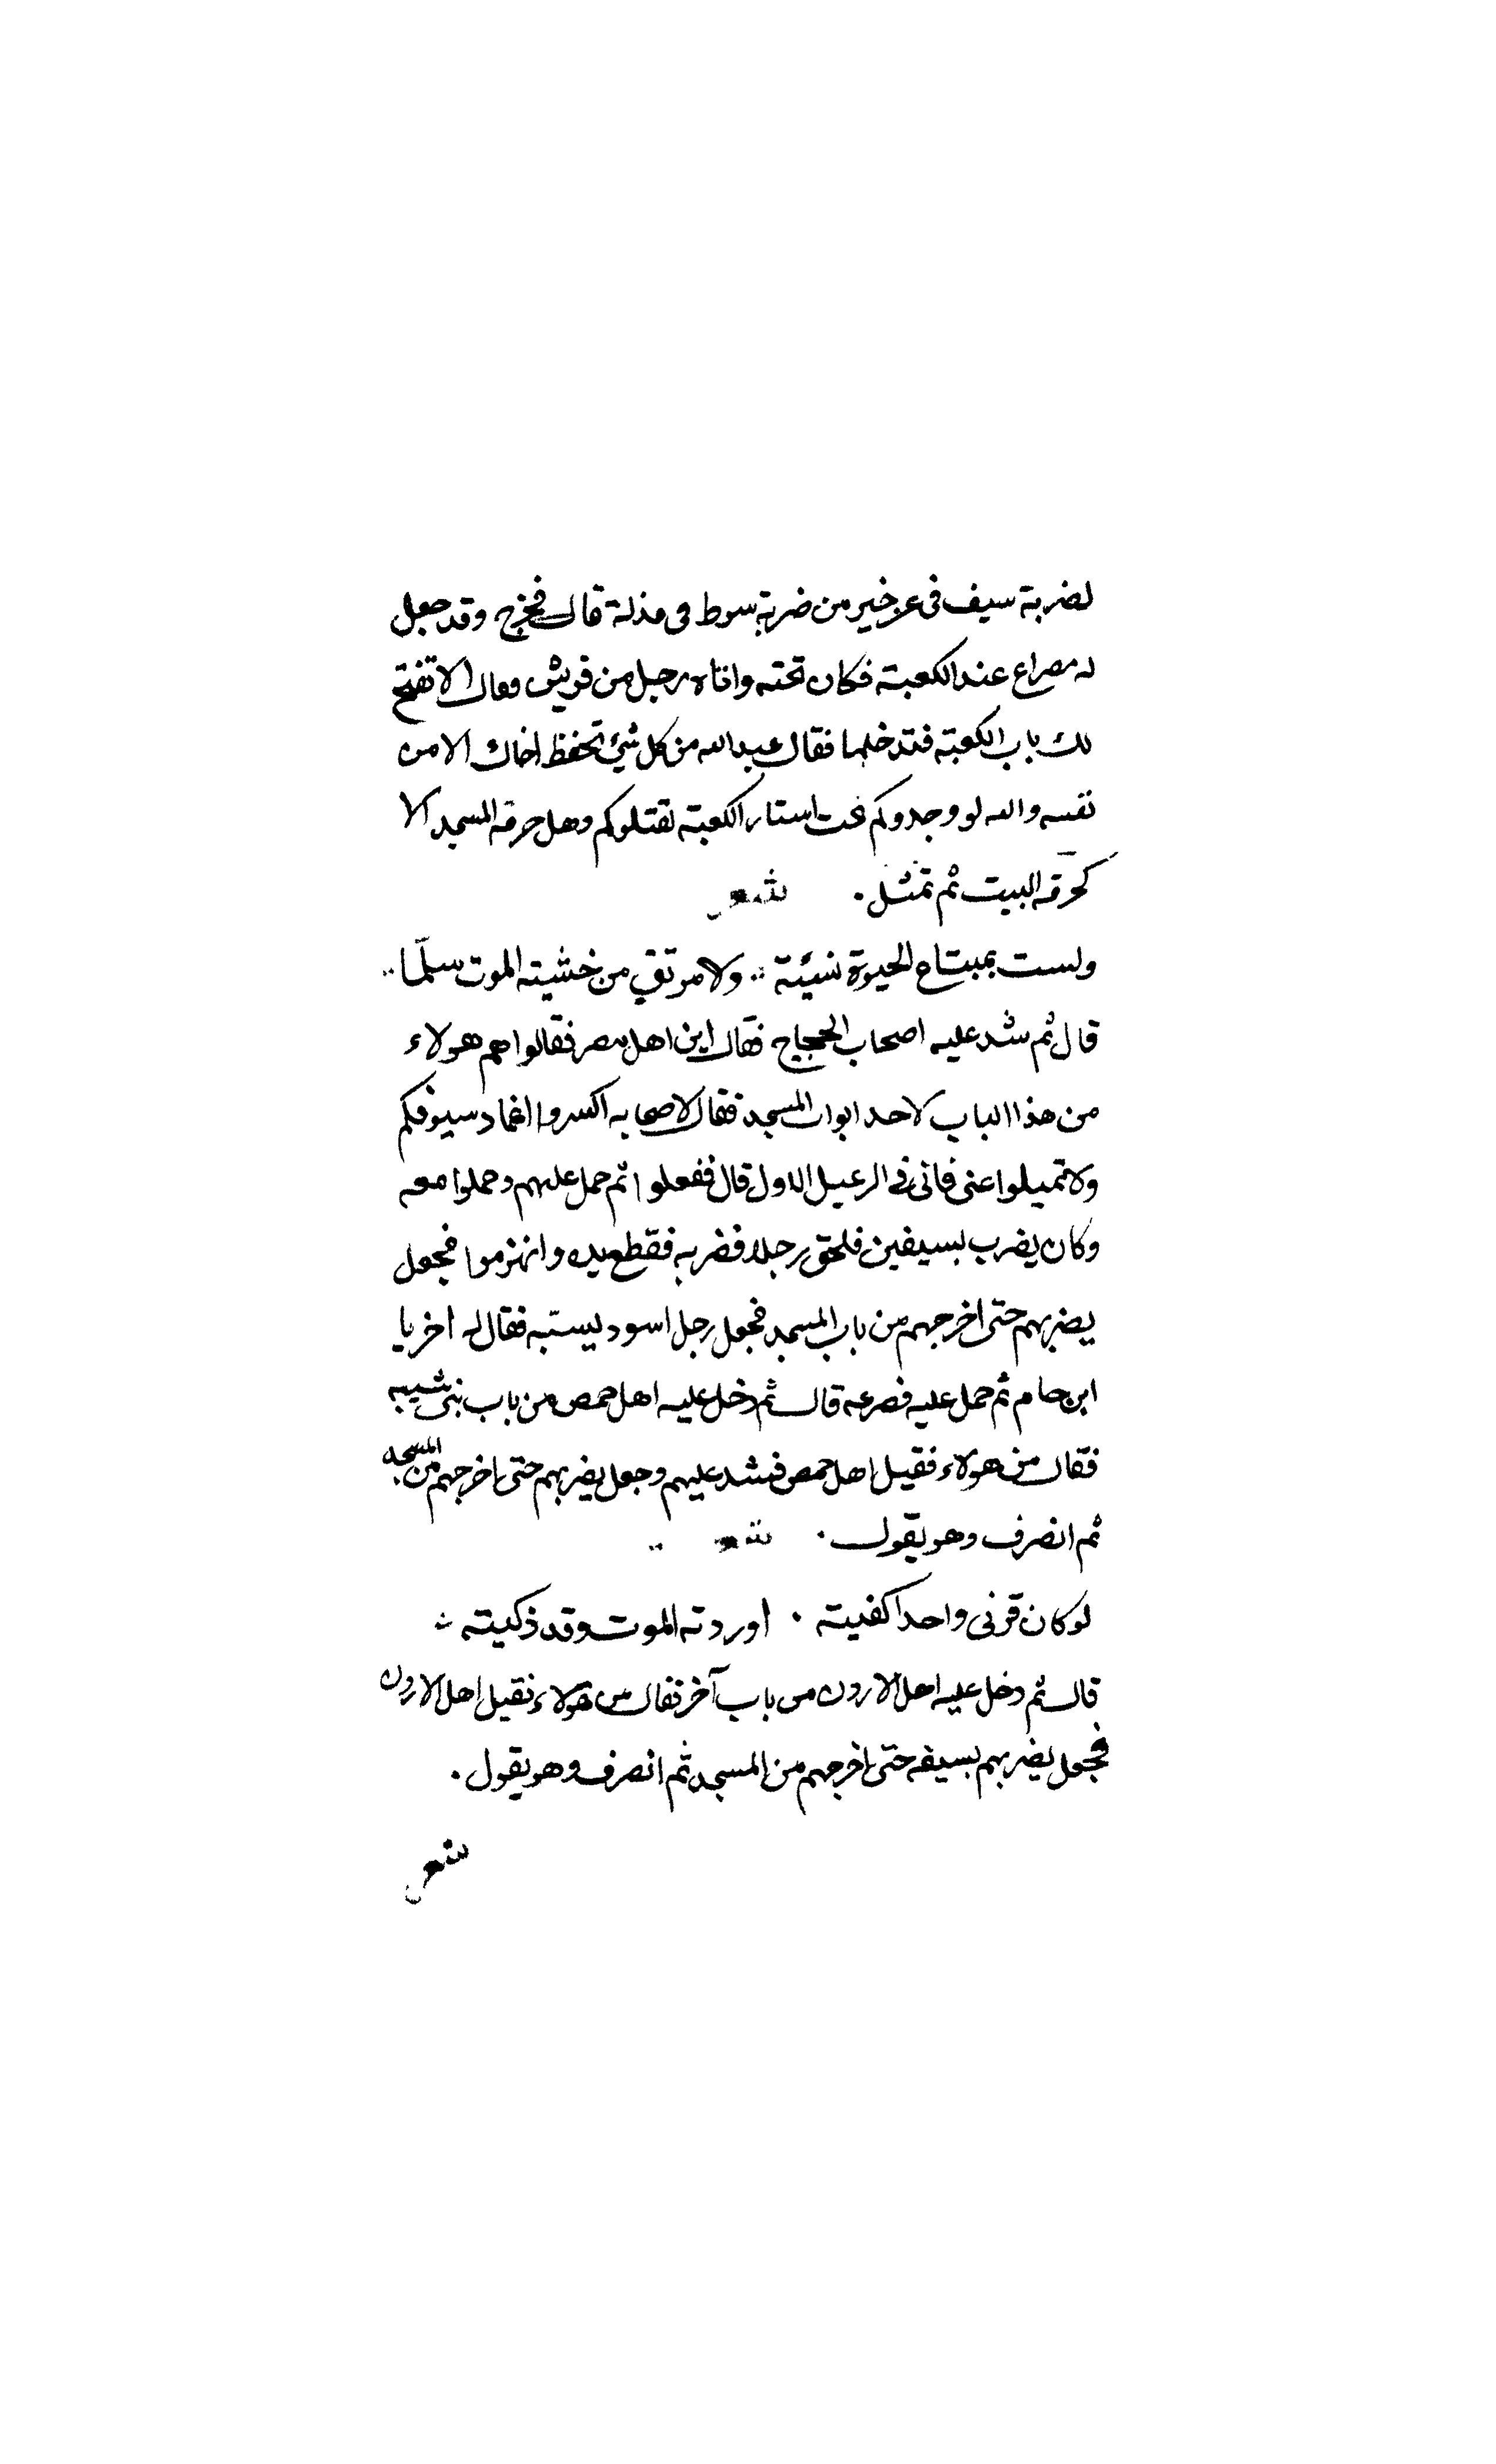 لضربة سيف فى عز خير من ضربة سوط فى مذلة قال فخرج وقد جعل
له مصراع عند الكعبة فكان تحته واتاه رجل من قريش فقال الا تفتح
لك باب الكعبة فتدخلها فقال عبد الله من كل شئ تحفظ اخاك الا من
نفسه والله لو وجدوكم تحت استار الكعبة لقتلوكم وهل حرمة المسجد الا
كحرمة البيت ثم تمثل . شعر
ولست بمبتاع الحيوة نسيئة ولا مرتقى من خشية الموت سلّما
قال ثم شد عليه اصحاب الحجاج فقال اين اهل مصر فقالوا هم هولاء
من هذا الباب لاحد ابواب المسجد فقال لاصحابه اكسروا اغماد سيوفكم
ولا تميلوا عنى فانى فى الرعيل الاول قال ففعلوا ثم حمل عليهم وحملوا معه
وكان يضرب بسيفين فلحق رجلا فضربه فقطع يده وانهزموا فجعل
يضربهم حتى اخرجهم من باب المسجد فجعل رجل اسود يسبّه فقال له اخر يا
ابن حام ثم حمل عليه فصرعه قال ثم دخل عليه اهل حمص من باب بنى شيبه
فقال من هولاء فقيل اهل حمص فشد عليهم وجعل يضربهم حتى اخرجهم من المسجد
ثم انصرف وهو يقول . شعر
لو كان قرنى واحدا كفيته . اوردته الموت وقد ذكيته
قال ثم دخل عليه اهل الاردن من باب آخر فقال من هولاء فقيل اهل الاردن
فجعل يضربهم بسيفه حتى اخرجهم من المسجد ثم انصرف وهو يقول .
شعر